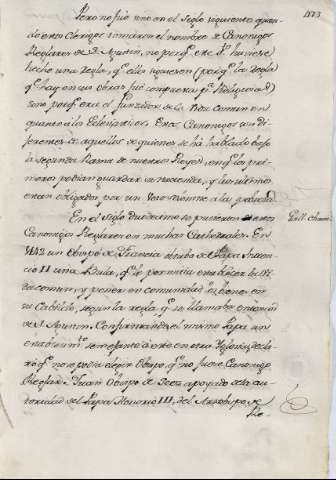 Pero no fue sino en el siglo siguiente quan-
do estos Clerigos tomaron el nombre de Canonigos
Reglares de S. Agustin, no porq.e este S.to huviese
hecho una Regla, q.e ellos siguiesen (porq.e la Regla
q.e hay en sus obras fue compuesta p.a Religiosas)
sino porq.e era el fundador de la Vida Comun en
quanto a los Eclesiasticos. Estos Canonigos
diferentes de aquellos de quienes se ha hablado bajo
la segunda Rama de nuestros Reyes, en q.e los pri-
meros podian guardar su hacienda, y los ultimos
estan obligados por un Voto solemne a la pobreza.
En el siglo duodecimo se pusieron estos
Canonigos Reglares en muchas Cathedrales. En
1142 un Obispo de Francia obtubo de el Papa Inocen-
cio II una Bula, q.e le permitia establecer la Vi-
da comun, y poner en comunidad los bienes en
su Cabildo, segun la regla q.e se llamaba entonces
de S. Agustin. Confirmando el mismo Papa un
establecim.to semejante a este en otra Yglesia, decla-
ró q.e no se podia elegir Obispo, q.e no fuese Canonigo
Reglar. Juan Obispo de Seez apoyado de la au-
toridad del Papa Honorio III, del Arzobispo de